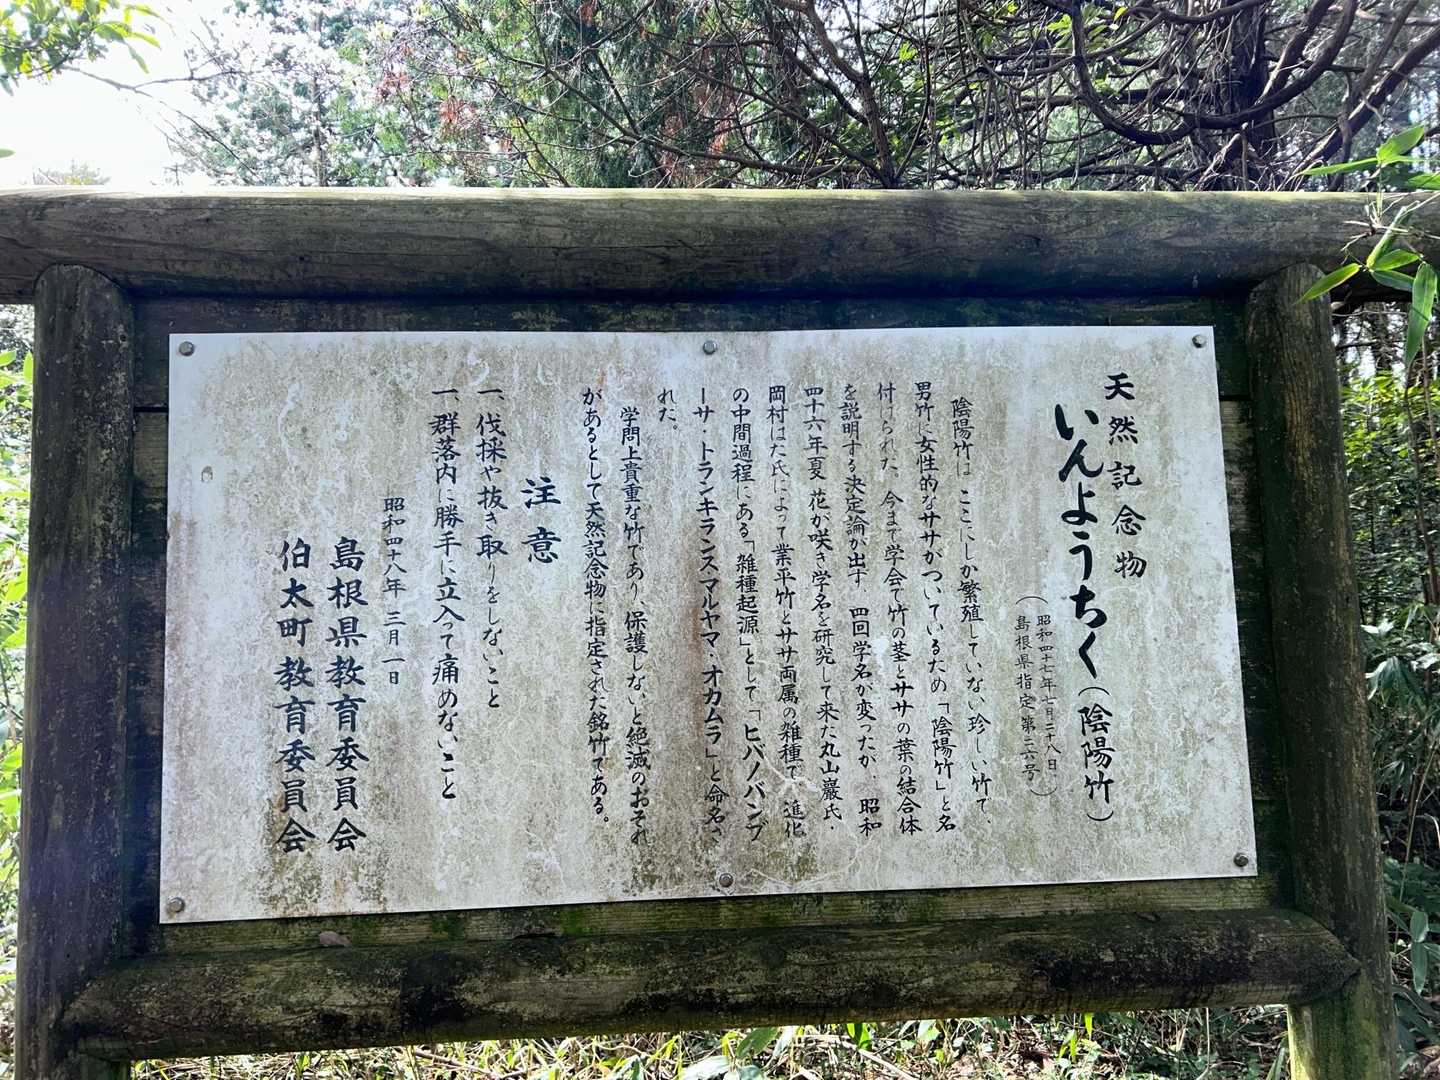 天然記念物
いんようちく(陰陽竹)
(昭和四十七年七月二十八日
島根県指定第二六号)
陰陽竹は ここにしか繁殖していない珍しい竹で、
男竹に女性的なササがついているため「陰陽竹」と名
付けられた。今まで学会で竹の茎とササの葉の結合体
を説明する決定論が出ず、四回学名が変ったが、昭和
四十六年夏 花が咲き学名を研究して来た丸山巌氏・
岡村はた氏によって業平竹とササ両属の雑種で、進化
の中間過程にある「雑種起源」として「ヒバノバンブ
ーサ・トランキランスマルヤマ・オカムラ」と命名さ
れた。
学問上貴重な竹であり、保護しないと絶滅のおそれ
があるとして天然記念物に指定された銘竹である。
注意
一、伐採や抜き取りをしないこと
一、群落内に勝手に立入って痛めないこと
昭和四十八年 三月一日
島根県教育委員会
伯太町教育委員会